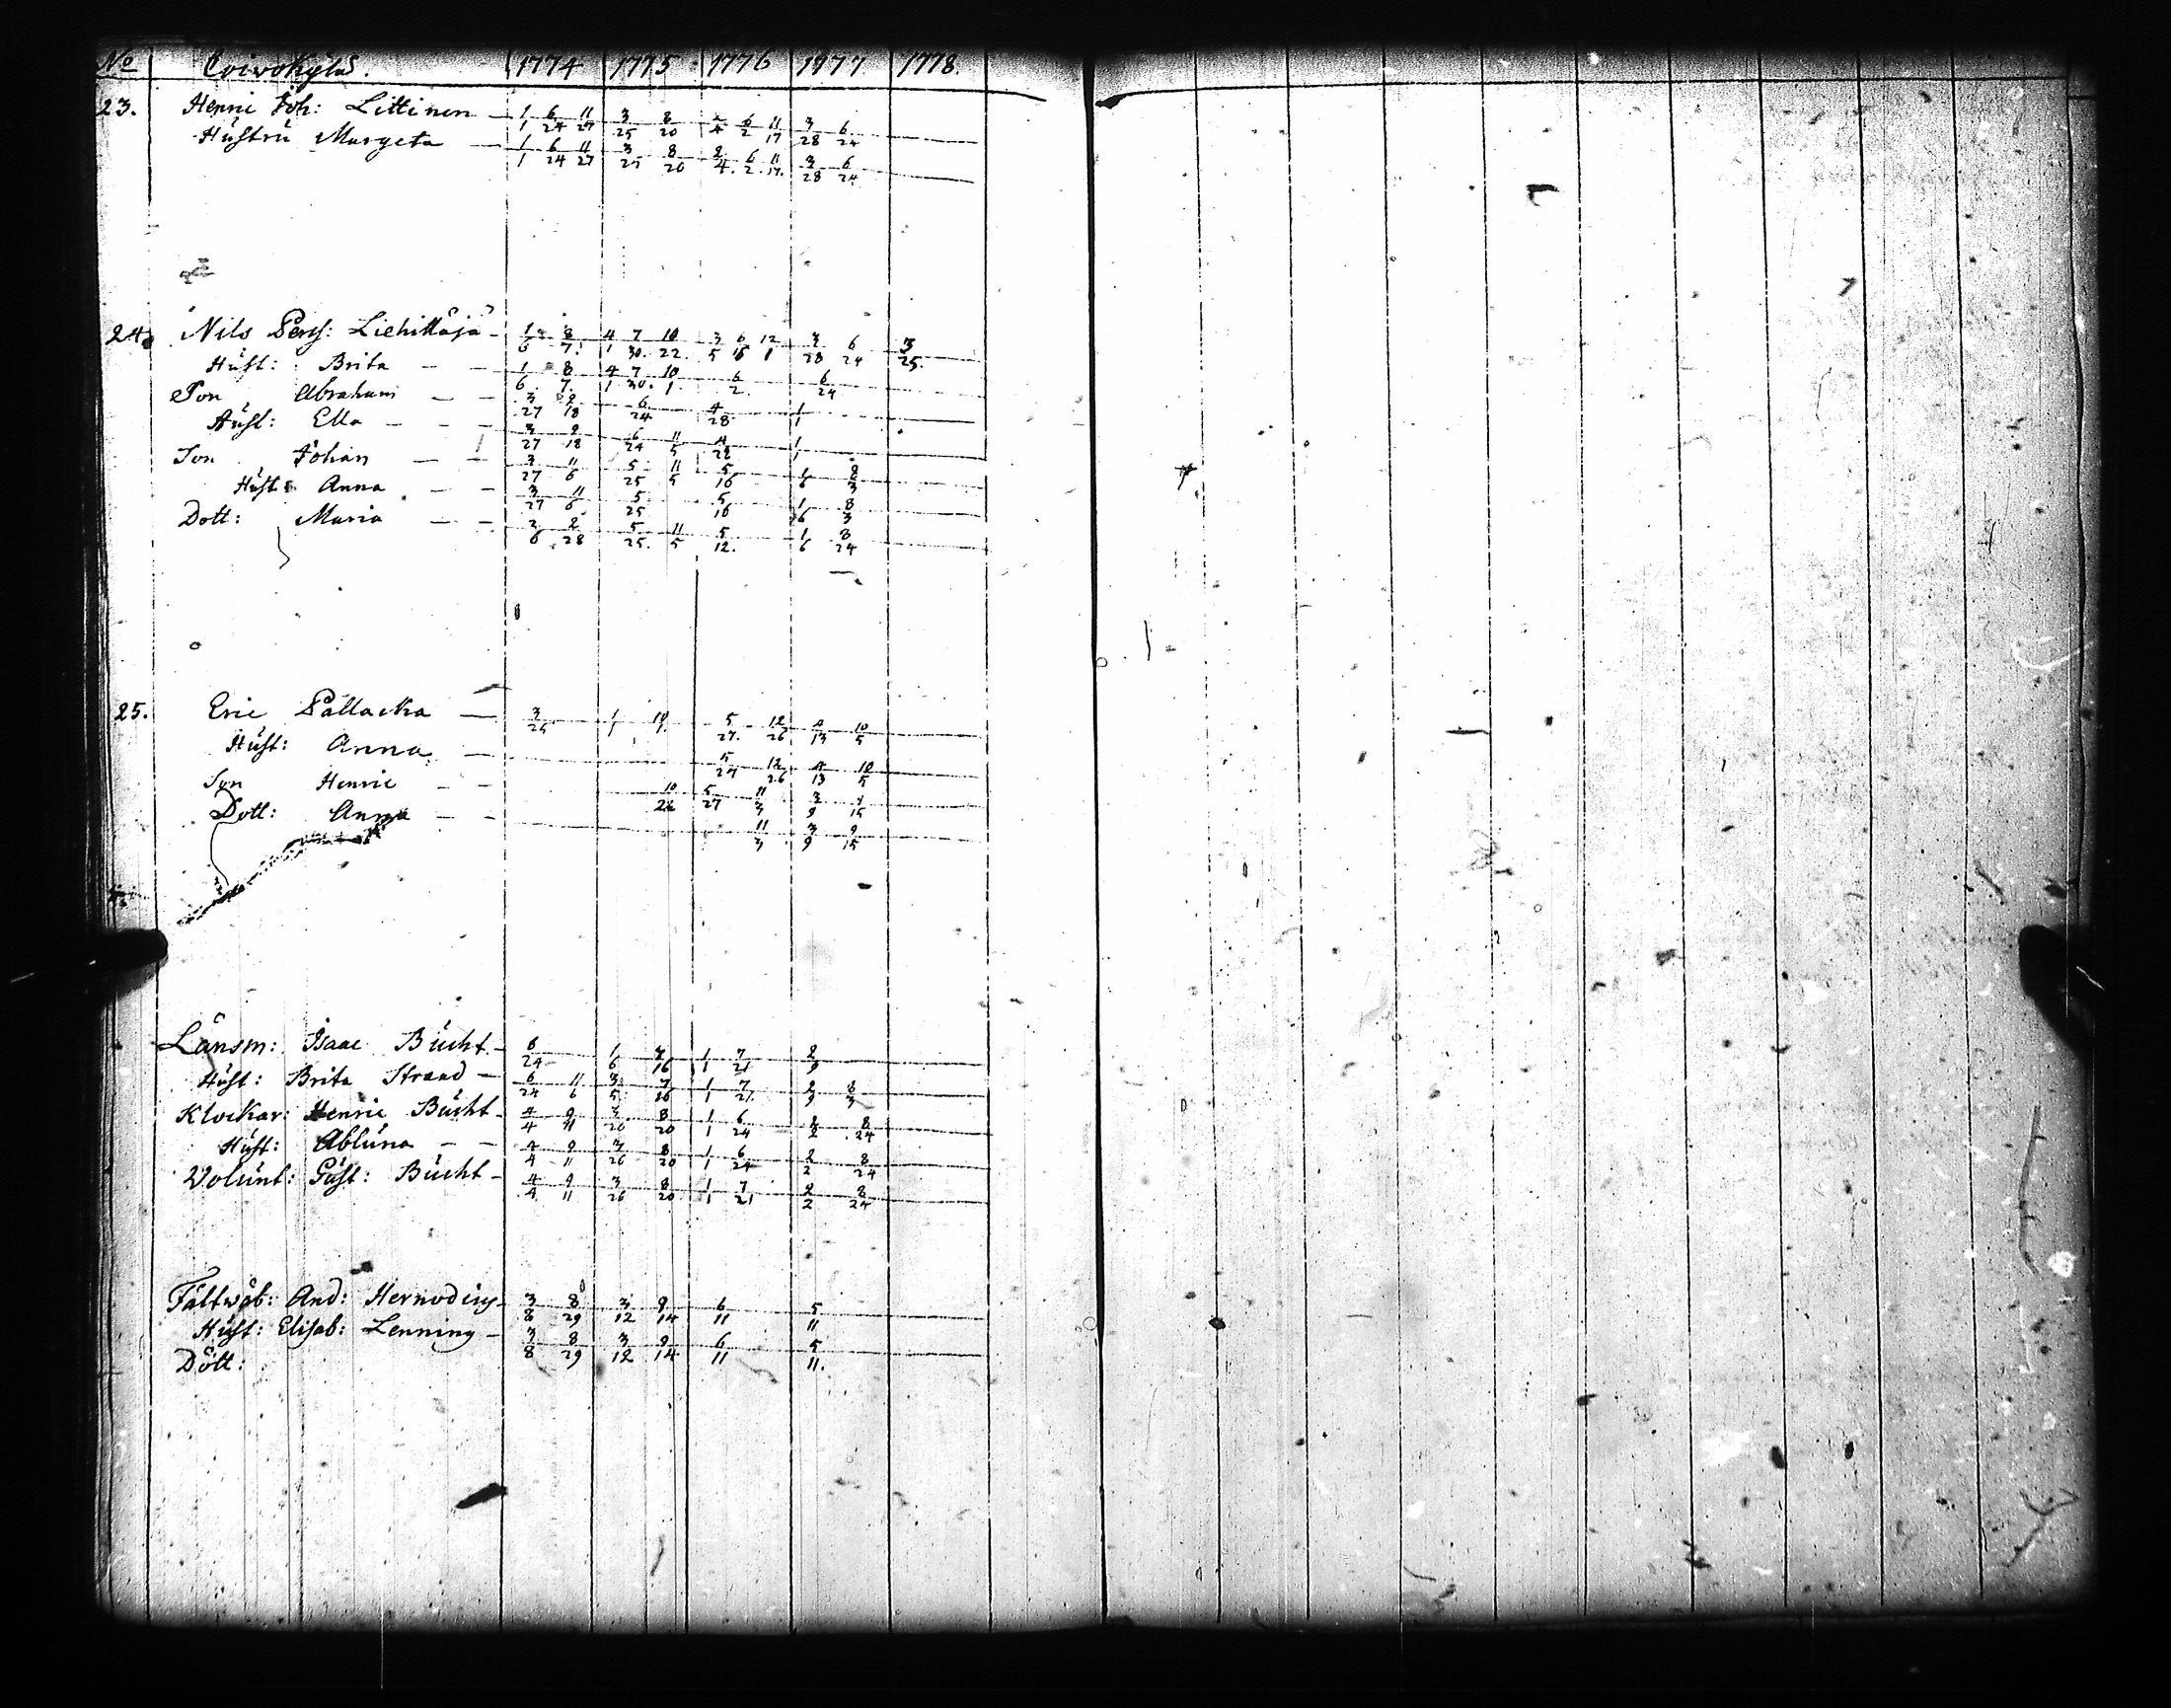 No Coivokylä. 1774 1775 1776 1977 1778.
23. Henric Joh: Littinen 1/1 6/24 11/27 3/25 8/20 2/4 6/2 11/17 3/28 6/24
Hustru Margeta 1/1 6/24 11/27 3/25 8/20 2/4. 6/2. 11/17. 3/28 6/24
24. Nils Pers: Liehittäjä 1/6 8/7. 4/1 7/30. 10/22. 3/5 6/16 12/1 3/28 6/24 3/25.
Hust: Brita 1/6. 8/7. 4/1 7/30. 10/1. 6/2. 6/24
Son Abraham 3/27 9/18 6/24 4/28 1/1
Hust: Ella 3/27 9/18 6/24 11/5 4/28 1/1
Son Johan 3/27 11/6 5/25 11/5 5/16 1/6 8/3
Hust: Anna 3/27 11/6 5/25 5/16 1/6 8/3
Dott: Maria 2/6 2/28 5/25. 11/5 5/12. 1/6 3/24
25. Eric Pallacka 3/25 1/1 10/1. 5/27. 12/26 4/13 10/5
Hust: Anna 5/27 12/26 4/13 10/5
Son Henric 10/22 5/27 11/3 3/9 9/15
Dott: Anna 11/3 3/9 9/15
Länsm: Isaac Bucht 6/24 1/6 7/16 1/1 7/21 2/9
Hust: Brita Strand 6/24 11/6 3/5 7/16 1/1 7/21 2/9 8/3
Klockar: Henric Bucht 4/4 9/11 3/26 8/20 1/1 6/24 2/2 8/24
Hust: Abluna 4/4 9/11 3/26 8/20 1/1 6/24 2/2 8/24
Volunt: Gust: Bucht 4/4 9/11 3/26 8/20 1/1 7/21 2/2 8/24
Fältwäb: And: Hernoding 3/8 8/29 3/12 9/14 6/11 5/11
Hust: Elisab: Lenning 3/8 8/29 3/12 9/14 6/11 5/11.
Dött: